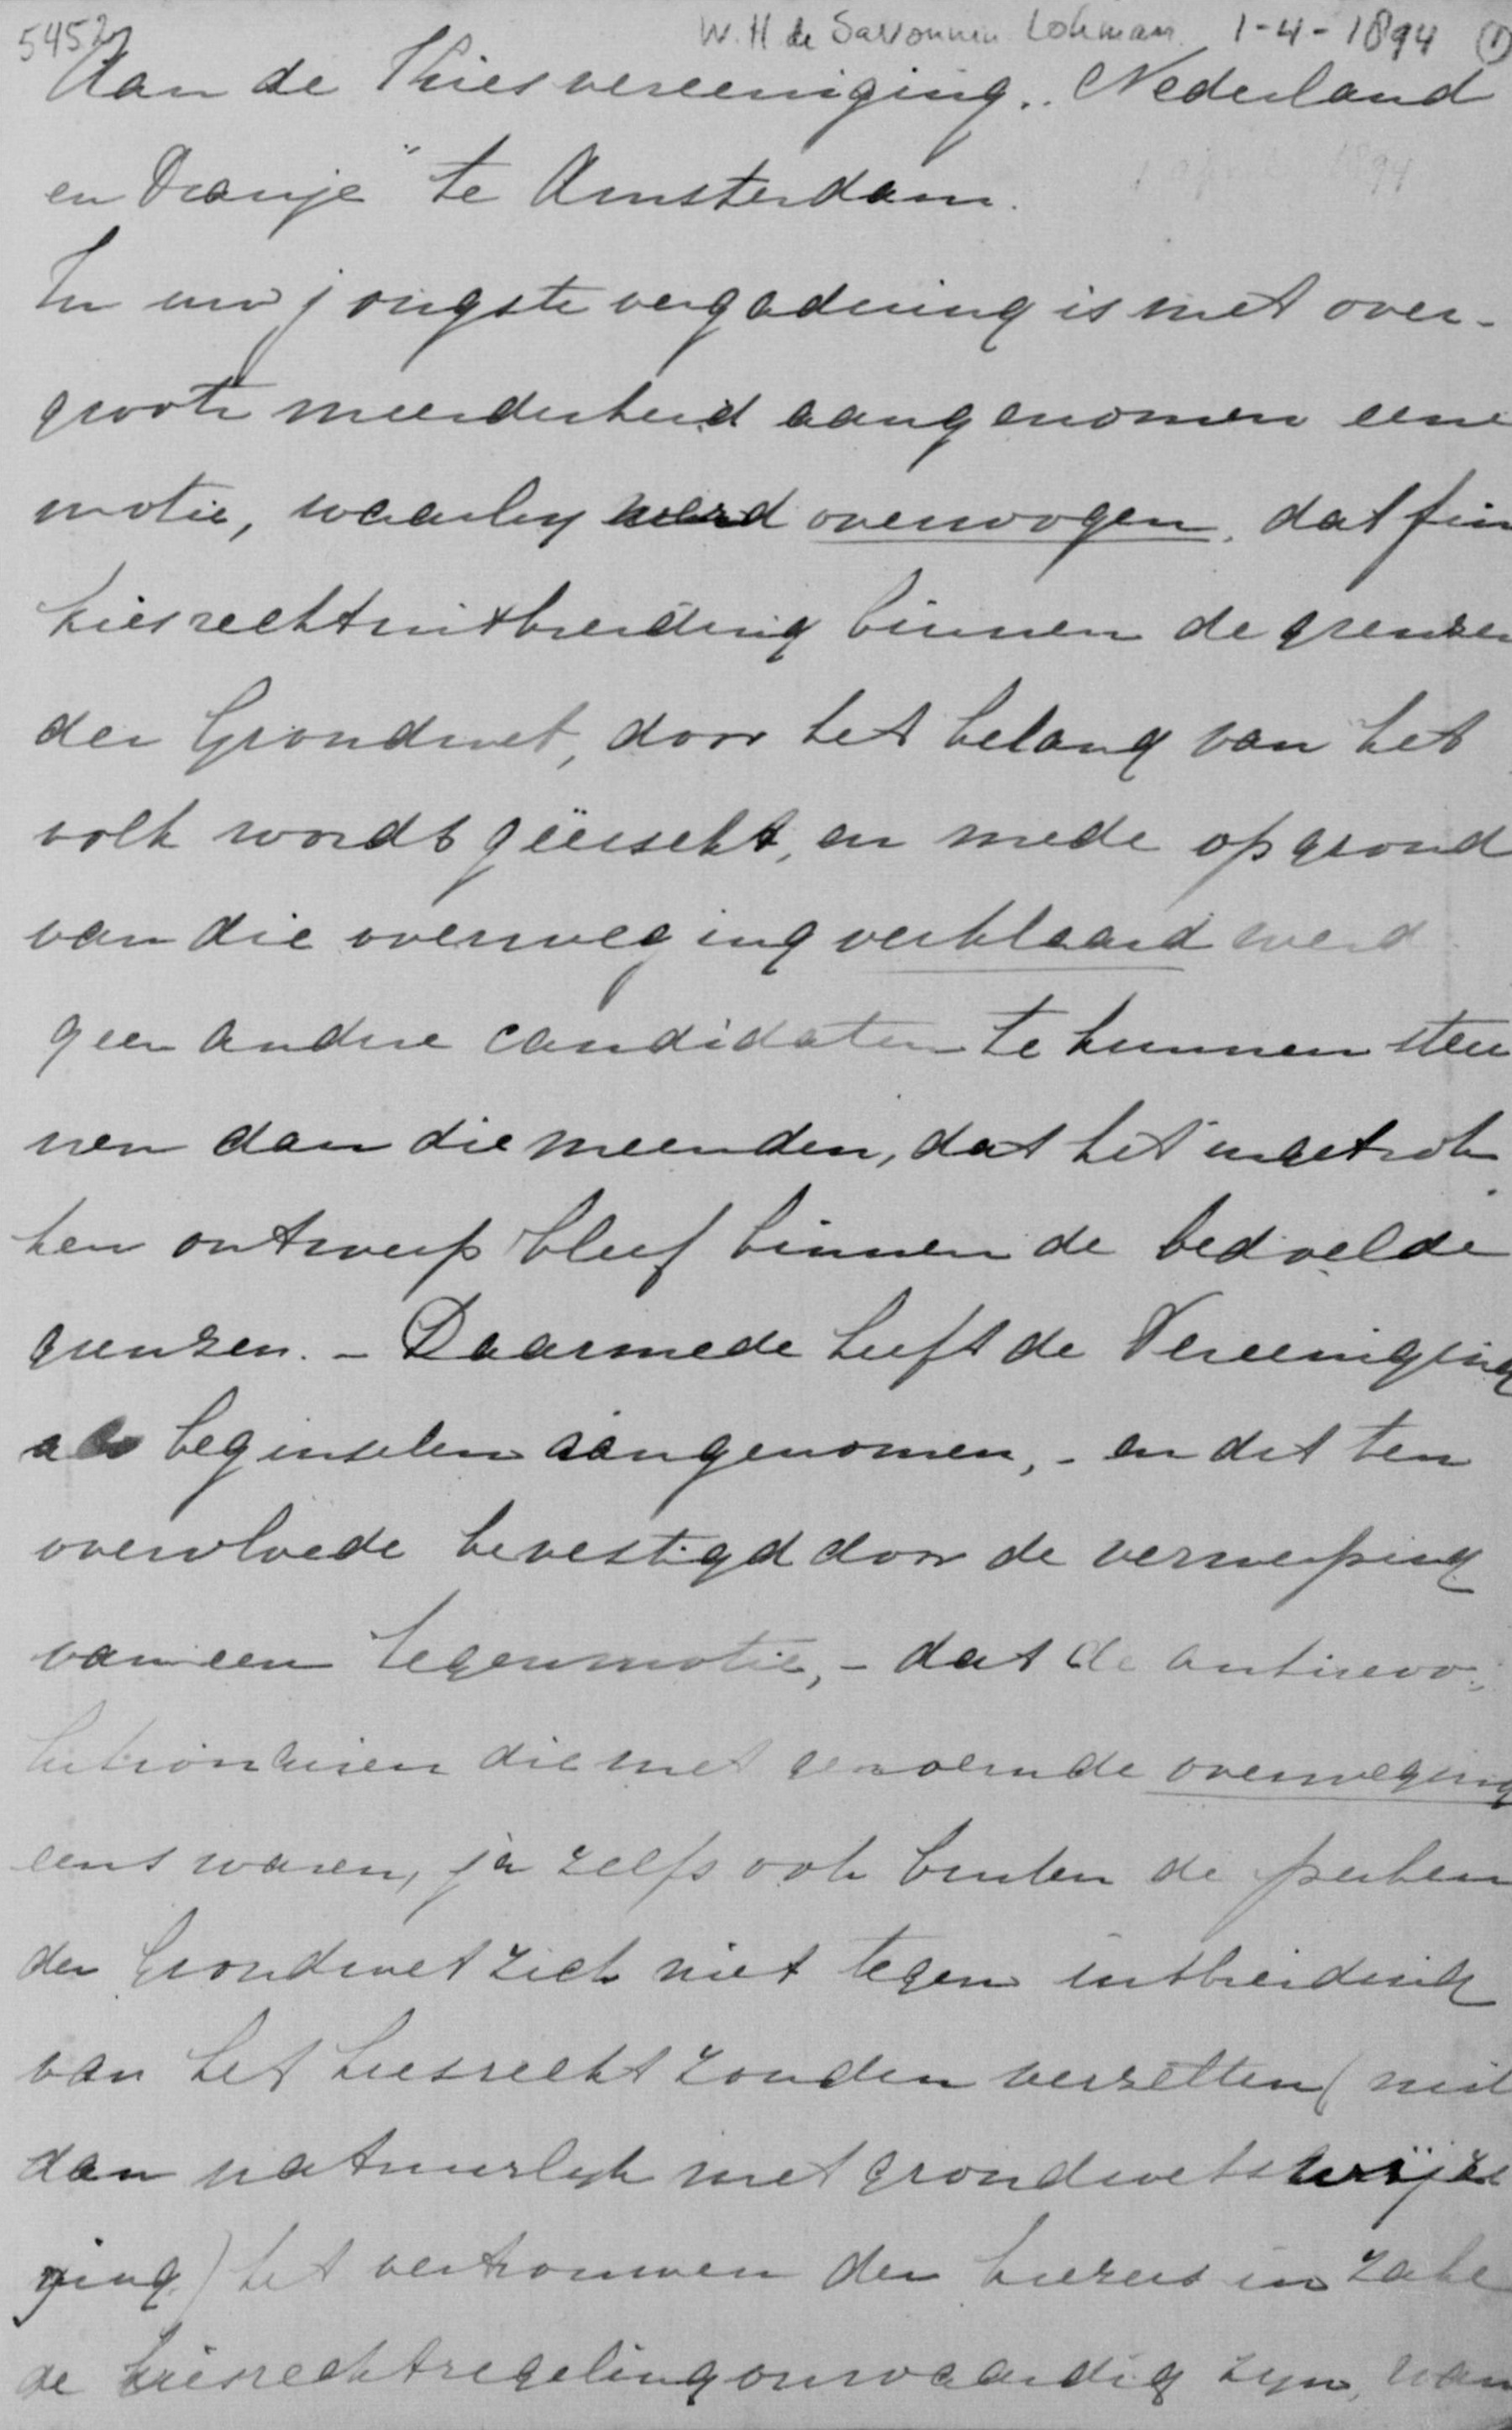 5452
W. H de Savornin Lohman 1-4-1894 (1)
Aan de Kiesvereeniging „Nederland
en Oranje" te Amsterdam.
In uw jongste vergadering is met over-
groote meerderheid aangenomen eene
motie, waarby werd overwogen, dat
kiesrechtuitbreiding binnen de grenzen
der Grondwet, door het belang van het
volk wordt geëischt, en mede op grond
van die overweging verklaard werd
geen andere candidaten te kunnen steu
nen dan die meenden, dat het ingetrok
ken ontwerp bleef binnen de bedoelde
grenzen. - Daarmede heeft de Vereeniging
als beginselen aangenomen, - en dit ten
overvloede bevestigd door de verwerping
van een tegenmotie, - dat de antirevo-
lutionairen die met genoemde overweging
eens waren, ja zelfs ook buiten de perken
der Grondwet zich niet tegen uitbreiding
van het kiesrecht zouden verzetten (mits
dan natuurlyk met grondwetswijzi
ging) het vertrouwen der kiezers in zake
de kiesrechtregeling onwaardig zyn, wan